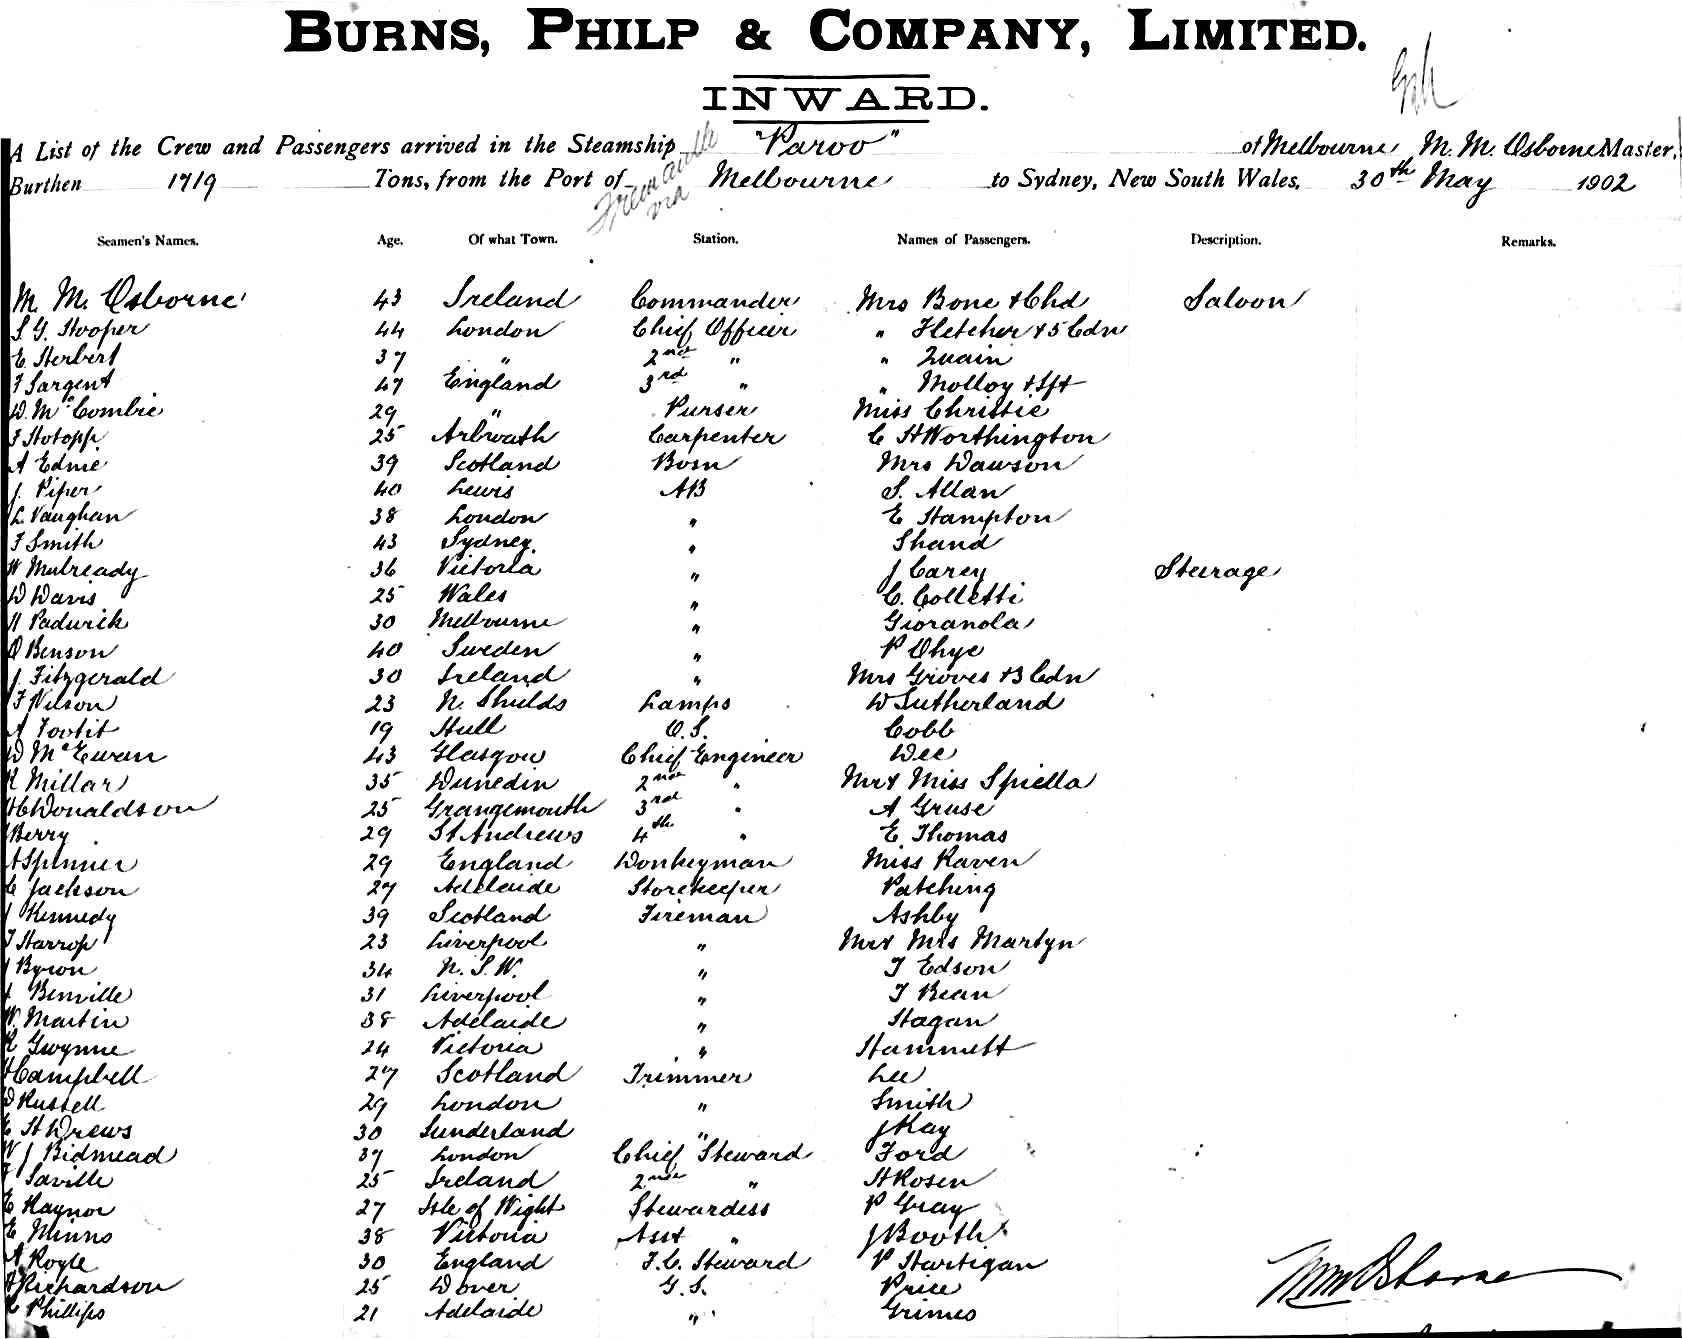 BURNS, PHILP & COMPANY, LIMITED.
INWARD.
A List of the Crew and Passengers arrived in the Steamship "Paroo" of Melbourne, M. M. Osborne Master,
Burthen 1719 Tons, from the Port of Fremantle via Melbourne to Sydney, New South Wales, 30th May 1902
Seamen's Names. Age. Of what Town. Station. Names of Passengers. Description. Remarks.
M. M. Osborne 43 Ireland Commander Mrs Bone & Chd Saloon
S. G. Hooper 44 London Chief Officer " Fletcher & 5 Cdn
E. Herbert 37 " 2nd " " Quain
F Sargent 47 England 3rd " " Molloy & Ift
D. McCombie 29 " Purser Miss Christie
F Hotopp 25 Arbroath Carpenter C H Worthington
A Ednie 39 Scotland Bosn Mrs Dawson
J. Piper 40 Lewis AB S. Allan
L. Vaughan 38 London " E Hampton
F Smith 43 Sydney " Shand
W Mulready 36 Victoria " J Carey Steerage
D Davis 25 Wales " C. Colletti
H Padwick 30 Melbourne " Gioranola
O Benson 40 Sweden " P Ohye
J. Fitzgerald 30 Ireland " Mrs Groves & 3 Cdn
F Wilson 23 N. Shields Lamps D Sutherland
A Tootit 19 Hull O.S. Cobb
D McEwan 43 Glasgow Chief Engineer Dee
R Millar 35 Dunedin 2nd " Mr & Miss Spiella
H C Donaldson 25 Grangemouth 3rd " A Gruse
J Berry 29 St Andrews 4th " E Thomas
A Spinner 29 England Donkeyman Miss Raven
C Jackson 27 Adelaide Storekeeper Patching
J Kennedy 39 Scotland Fireman Ashby
T Harrop 23 Liverpool " Mr & Mrs Martyn
J Byron 34 N. S. W. " T Edson
J Benville 31 Liverpool " T Bean
W. Martin 38 Adelaide " Hagan
R Gwynne 24 Victoria " Hammett
H Campbell 27 Scotland Trimmer Lee
D Russell 29 London " Smith
E H Drews 30 Sunderland " J Kay
W J Bidmead 37 London Chief Steward Ford
F Saville 25 Ireland 2nd " H Rosen
E Raynor 27 Isle of Wight Stewardess P Gray
E Minns 38 Victoria Asst " J Booth
A Royle 30 England F. C. Steward P Hartigan
H Richardson 25 Dover G. S. Price
C Phillips 21 Adelaide " Grimes
M M Osborne